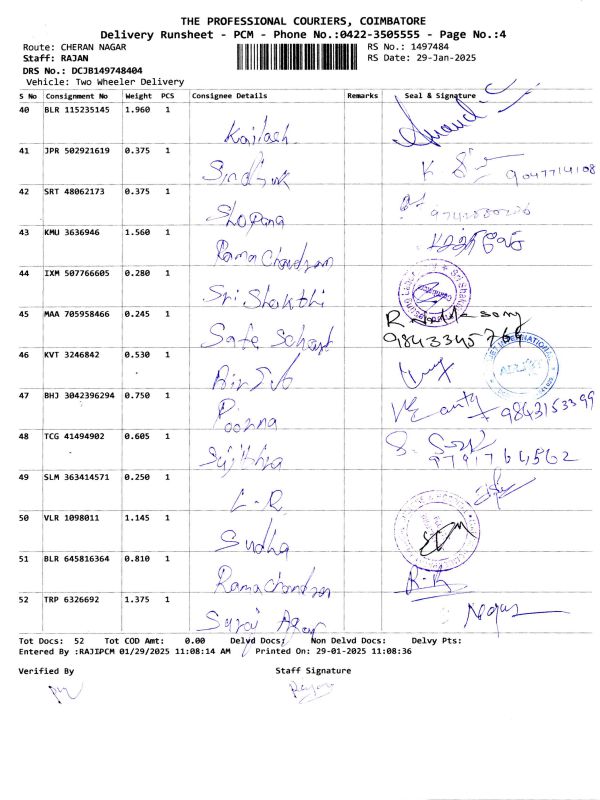 THE PROFESSIONAL COURIERS, COIMBATORE
Delivery Runsheet - PCM - Phone No.:0422-3505555 - Page No.:4
Route: CHERAN NAGAR RS No.: 1497484
Staff: RAJAN RS Date: 29-Jan-2025
DRS No.: DCJB149748404
Vehicle: Two Wheeler Delivery
S No Consignment No Weight PCS Consignee Details Remarks Seal & Signature
40 BLR 115235145 1.960 1
Kailash Anand
41 JPR 502921619 0.375 1
K 9047714108
42 SRT 48062173 0.375 1
Shopana
43 KMU 3636946 1.560 1
Rama Chandran
44 IXM 507766605 0.280 1
Sri Shakthi
45 MAA 705958466 0.245 1
Safe R
46 KVT 3246842 0.530 1
INTERNATIONAL
47 BHJ 3042396294 0.750 1
Poorna 9843153399
48 TCG 41494902 0.605 1
Sujitha S.
9791764562
49 SLM 363414571 0.250 1
L-R
50 VLR 1098011 1.145 1
Sudha
51 BLR 645816364 0.810 1
Rama Chandran R-R
52 TRP 6326692 1.375 1
Tot Docs: 52 Tot COD Amt: 0.00 Delvd Docs: Non Delvd Docs: Delvy Pts:
Entered By :RAJIPCM 01/29/2025 11:08:14 AM Printed On: 29-01-2025 11:08:36
Verified By Staff Signature
Rajan